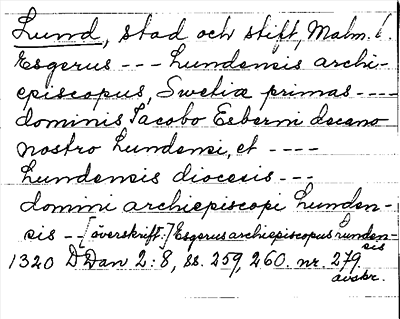 Lund, stad och stift, Malm. l.
Esgerus --- Lundensis archi-
episcopus, Swetiæ primas ----
dominis Jacobo Esberni decano
nostro Lundensi, et ----
Lundensis diocesis ---
domini archiepiscopi Lunden-
sis -- [överskrift:] Esgerus archiepiscopus Lunden-
sis
1320 DDan 2:8, ss. 259, 260. nr. 279.
avskr.